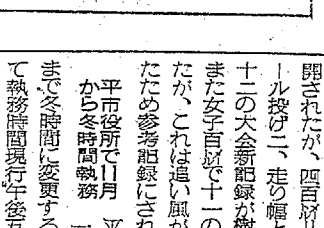 開されたが、四百㍍リ
ール投げ二、走り幅と
十二の大会新記録が樹
また女子百㍍で十一の
たが、これは追い風が
たため参考記録にされ
平市役所で11月　平
から冬時間執務　一
まで冬時間に変更する
て執務時間現行午後五